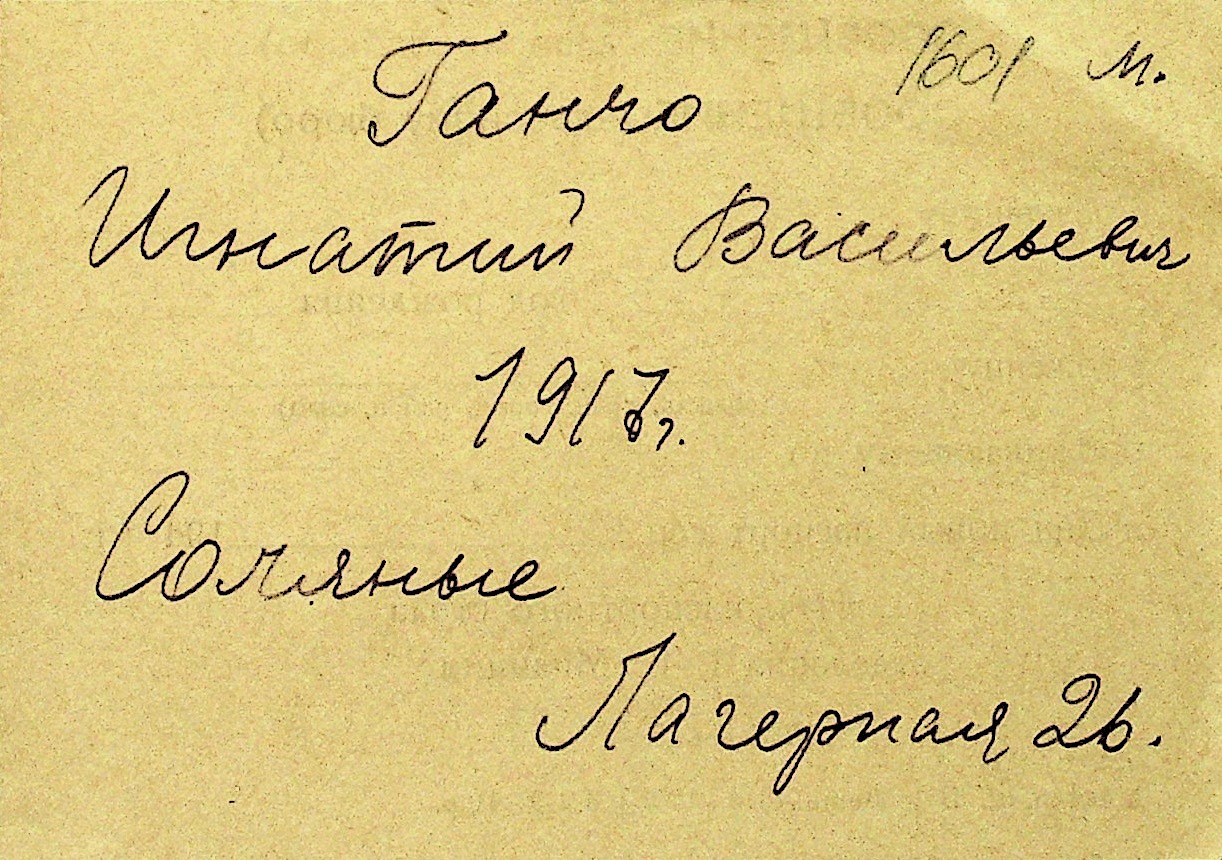 1601 м.
Ганчо
Игнатий Васильевич
1917г.
Соляные
Лагерная 26.